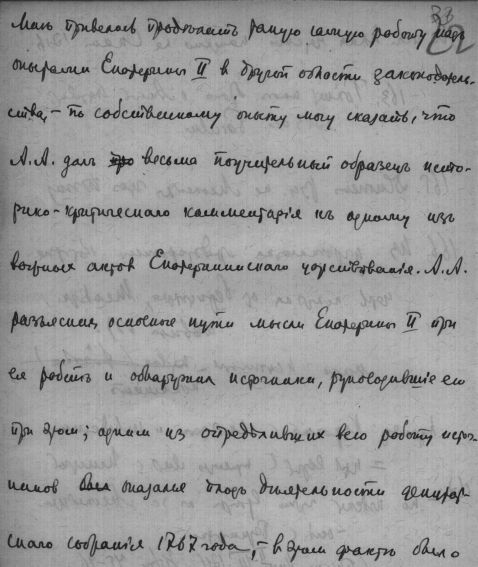 33
Мнѣ пришлось продѣлать такую самую работу надъ
опытами Екатерины II въ другой области законодатель-
ства, – по собственному опыту могу сказать, что
А.А. далъ весьма поучительный образецъ исто-
рико-критическаго комментарія къ одному изъ
важныхъ актовъ Екатерининскаго царствованія. А.А.
разъяснилъ основные пути мысли Екатерины II при
ея работѣ и обнаружилъ источники, руководившіе ею
при этомъ; однимъ изъ опредѣлившихъ всю работу источ-
никовъ оказался плодъ дѣятельности депутат-
скаго собранія 1767 года, – въ этомъ фактѣ было